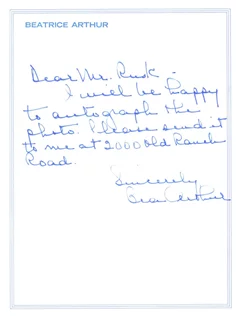 BEATRICE ARTHUR
Dear Mr. Rusk -
I will be happy
to autograph the
photo. Please send it
to me at 2000 Old Ranch
Road.
Sincerely
Bea Arthur